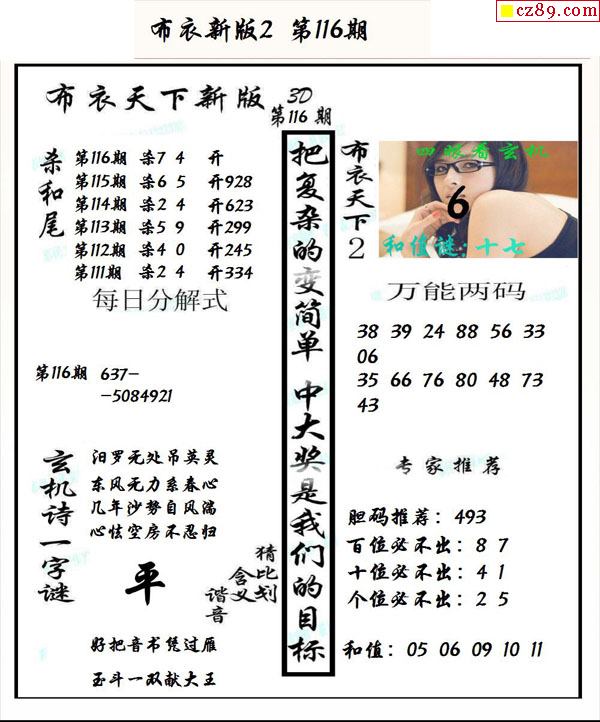 cz89.com
布衣新版2 第116期
布衣天下新版 3D
第116期
杀和尾
第116期 杀7 4 开
第115期 杀6 5 开928
第114期 杀2 4 开623
第113期 杀5 9 开299
第112期 杀4 0 开245
第111期 杀2 4 开334
每日分解式
第116期 637-
-5084921
玄机诗一字谜
汨罗无处吊英灵
东风无力系春心
几年沙势自风湍
心怯空房不忍归
平
猜比划
含义
谐音
好把音书凭过雁
玉斗一双献大王
把复杂的变简单 中大奖是我们的目标
布衣天下2
四眼看玄机
6
和值谜:十七
万能两码
38 39 24 88 56 33
06
35 66 76 80 48 73
43
专家推荐
胆码推荐：493
百位必不出：8 7
十位必不出：4 1
个位必不出：2 5
和值：05 06 09 10 11